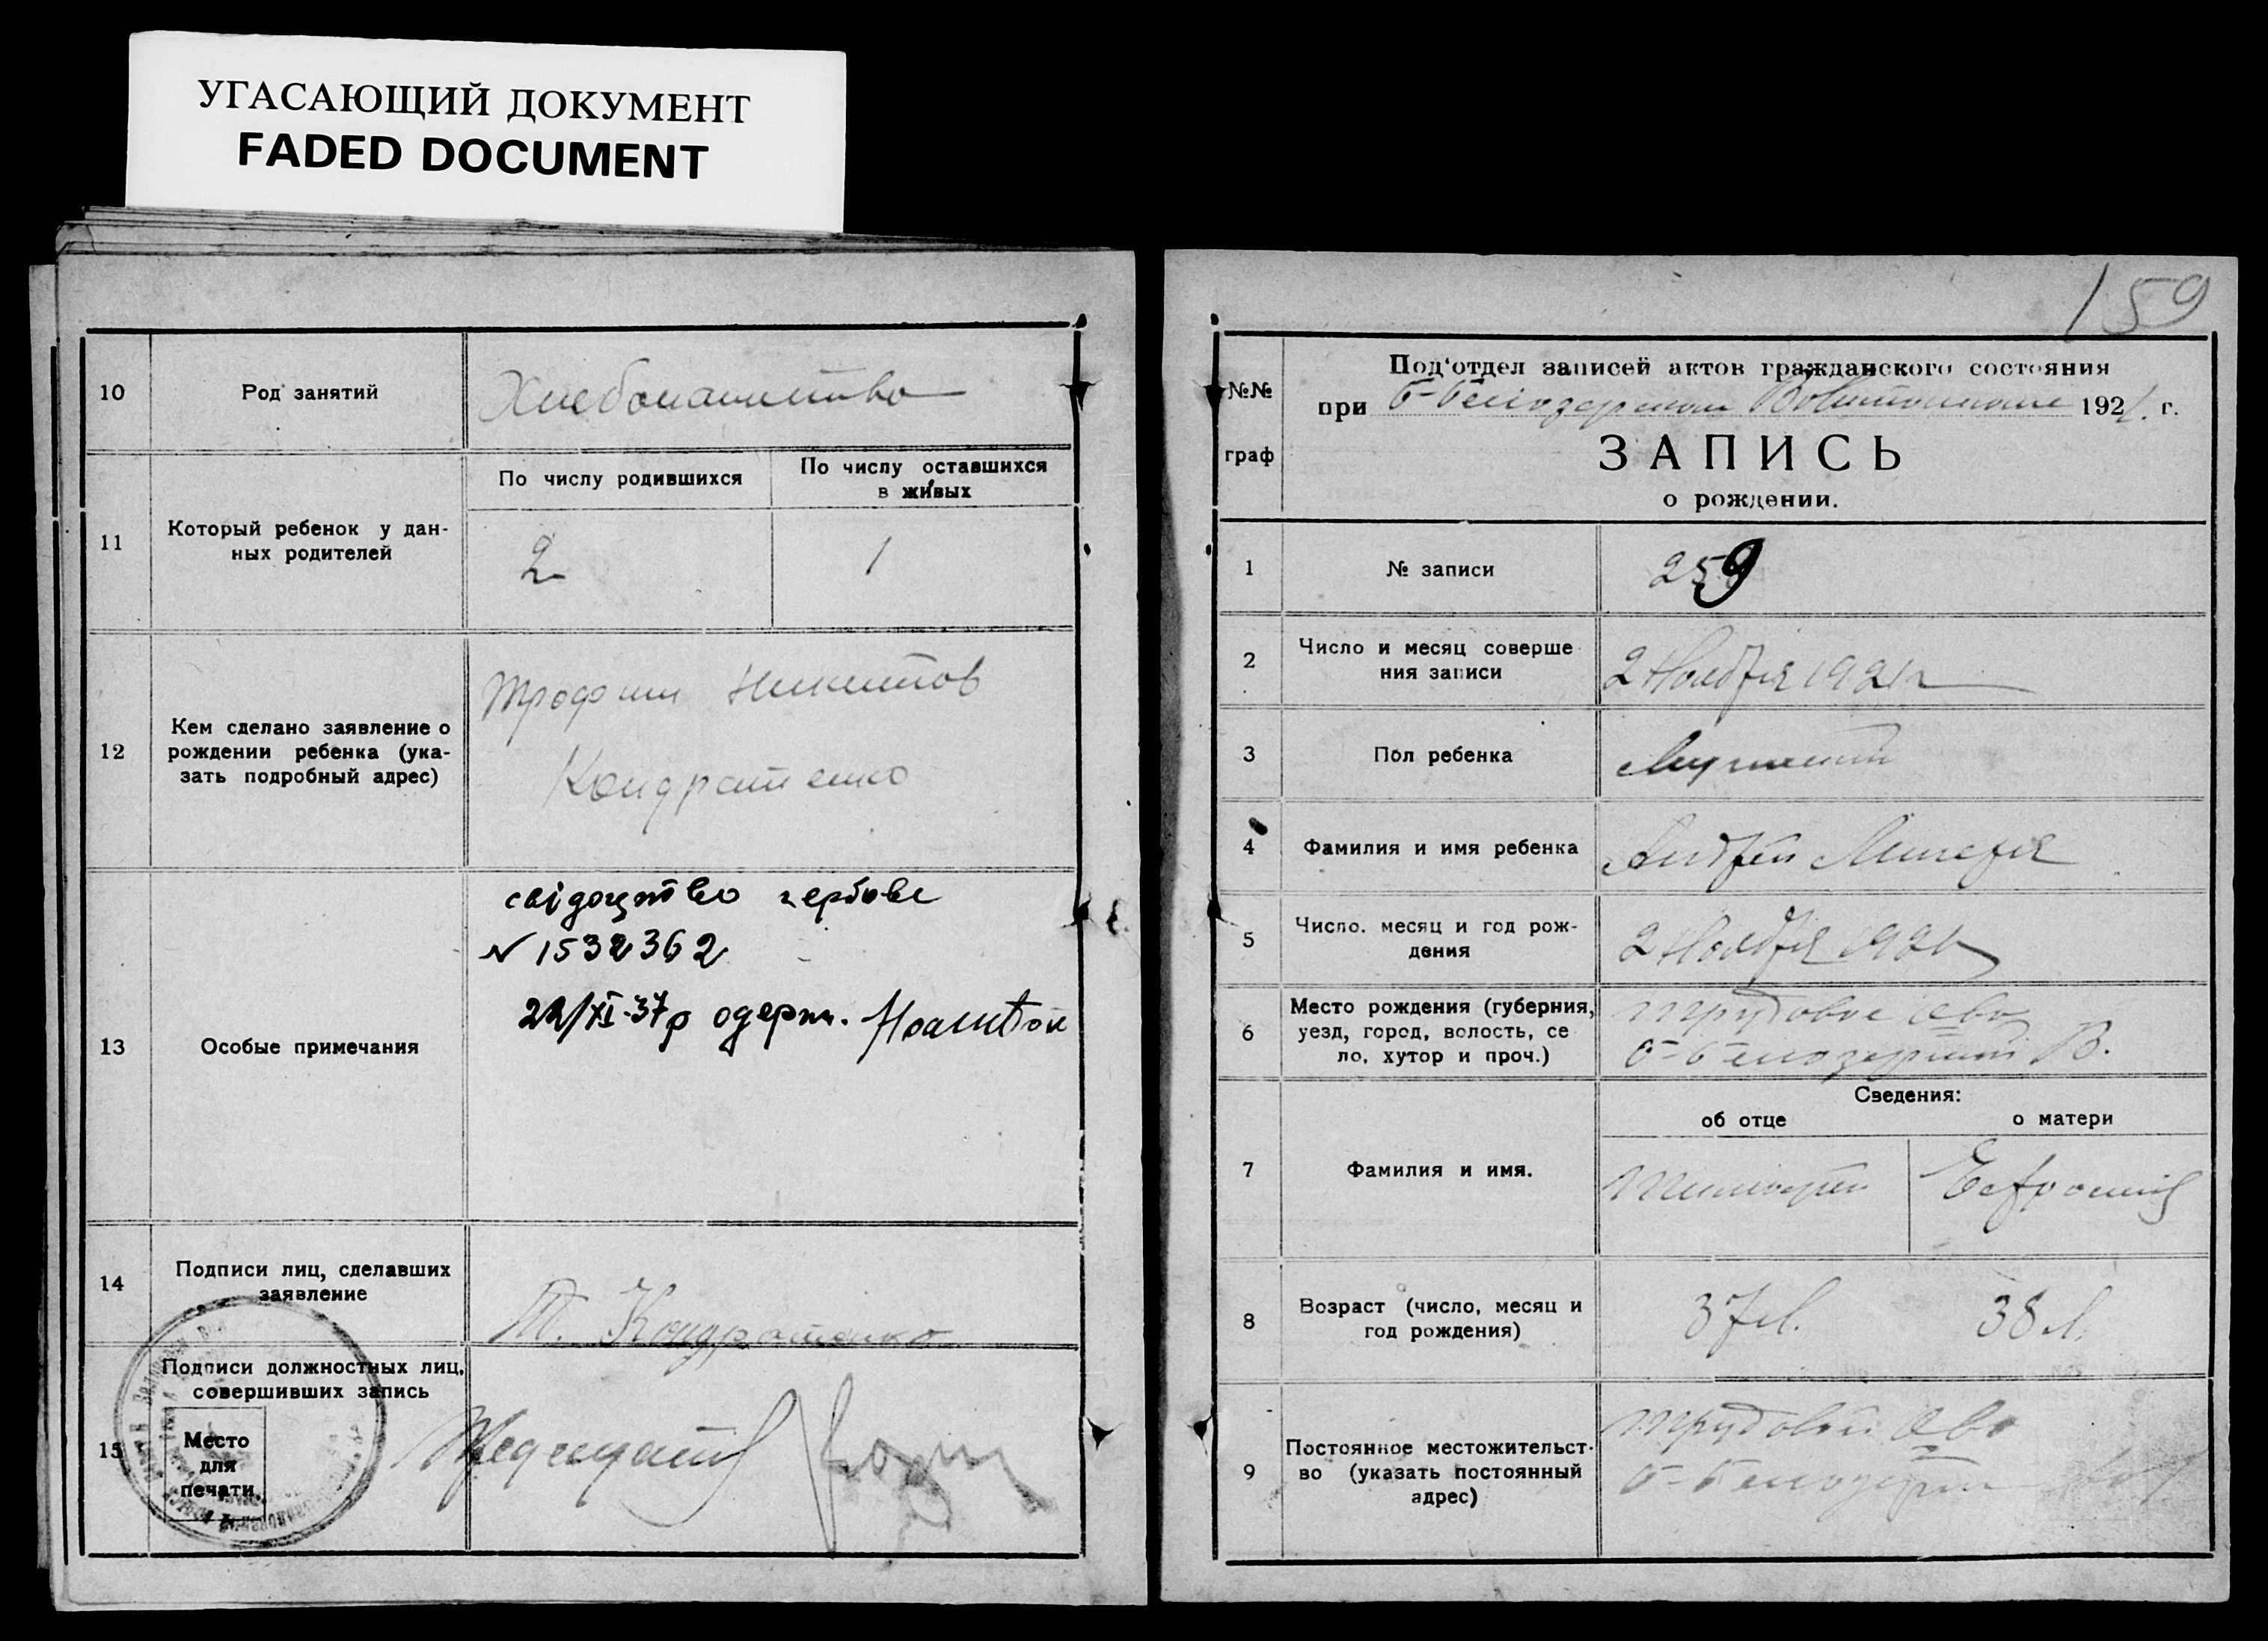 УГАСАЮЩИЙ ДОКУМЕНТ
FADED DOCUMENT
10
Род занятий
Хлебопашество
11
Который ребенок у дан-
ных родителей
По числу родившихся
По числу оставшихся
в живых
2
1
12
Кем сделано заявление о
рождении ребенка (ука-
зать подробный адрес)
Трофим Никитов
Кондратенко
13
Особые примечания
свідоцтво гербове
№ 1532362
22/XI-37р одерж.
14
Подписи лиц, сделавших
заявление
Т. Кондратенко
15
Подписи должностных лиц,
совершивших запись
Место
для
печати
159
№№
граф
Под‘отдел записей актов гражданского состояния
при Б-Белозерском Волисполкоме 1921 г.
ЗАПИСЬ
о рождении.
1
№ записи
259
2
Число и месяц соверше
ния записи
2 Ноября 1921 г
3
Пол ребенка
Мужеский
4
Фамилия и имя ребенка
Андрей
5
Число. месяц и год рож-
дения
2 Ноября 1921
6
Место рождения (губерния,
уезд, город, волость, се
ло, хутор и проч.)
Трудовое
Б-Белозерской В.
Сведения:
об отце
о матери
7
Фамилия и имя.
Тимофей
Ефросиния
8
Возраст (число, месяц и
год рождения)
37 л.
38 л.
9
Постоянное местожительст-
во (указать постоянный
адрес)
Трудовой
Б-Белозерской